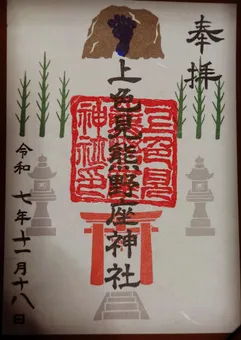 奉拝
上色見熊野座神社
上色見
神社印
令和七年十一月十八日